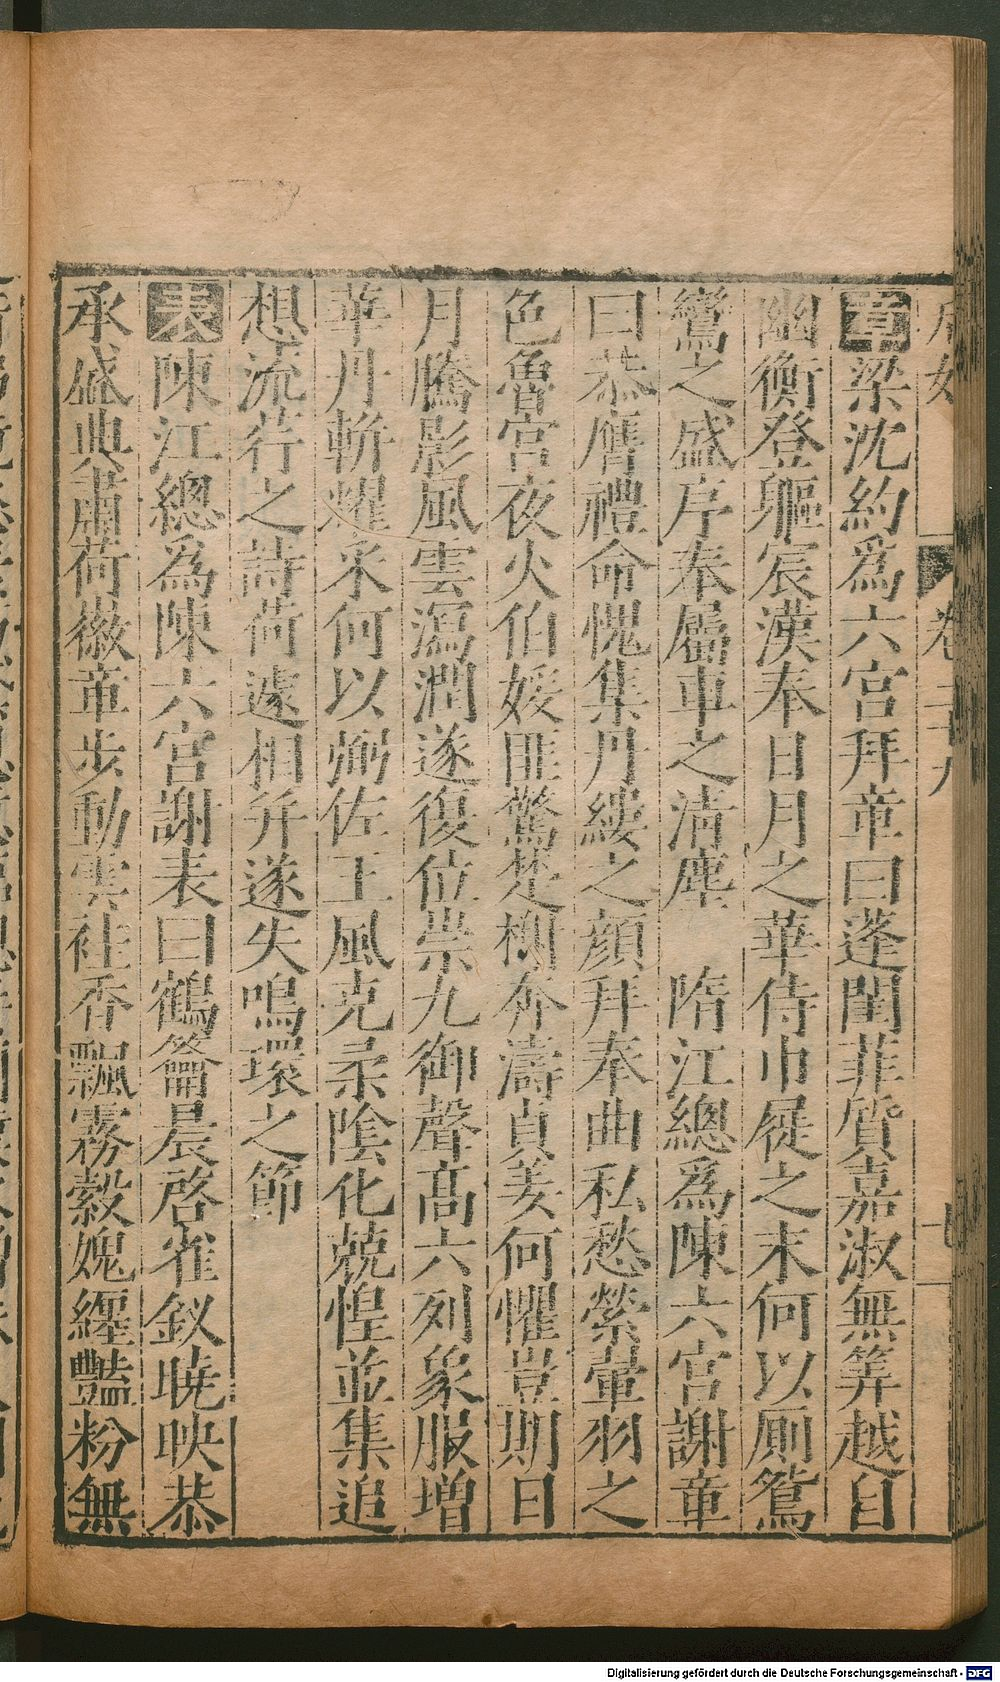 章梁沈約爲六宮拜章曰蓬閨菲質嘉淑無筭越自
幽衡登軀宸漢奉日月之華侍巾屣之末何以厠鴛
鸞之盛序奉屬車之清塵　隋江總爲陳六宮謝章
曰恭膺禮命愧集丹縷之顔拜奉曲私愁縈翬羽之
色魯宮夜火伯媛匪驚楚榭奔濤貞姜何懼豈期日
月騰影風雲瀉潤遂復位崇九御聲高六列象服増
華丹輧耀采何以弼佐王風克柔隂化兢惶並集追
想流荇之詩荷遽相弁遂失鳴環之節
表陳江總爲陳六宮謝表曰鶴籥晨啓雀釵曉映恭
承盛典肅荷徽章步動雲袿香飄霧縠媿纒豔粉無
卷十九
七
Digitalisierung gefördert durch die Deutsche Forschungsgemeinschaft - DFG